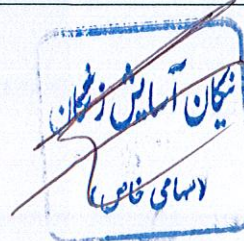 نیکان آسایش زنجان
(سهامی خاص)